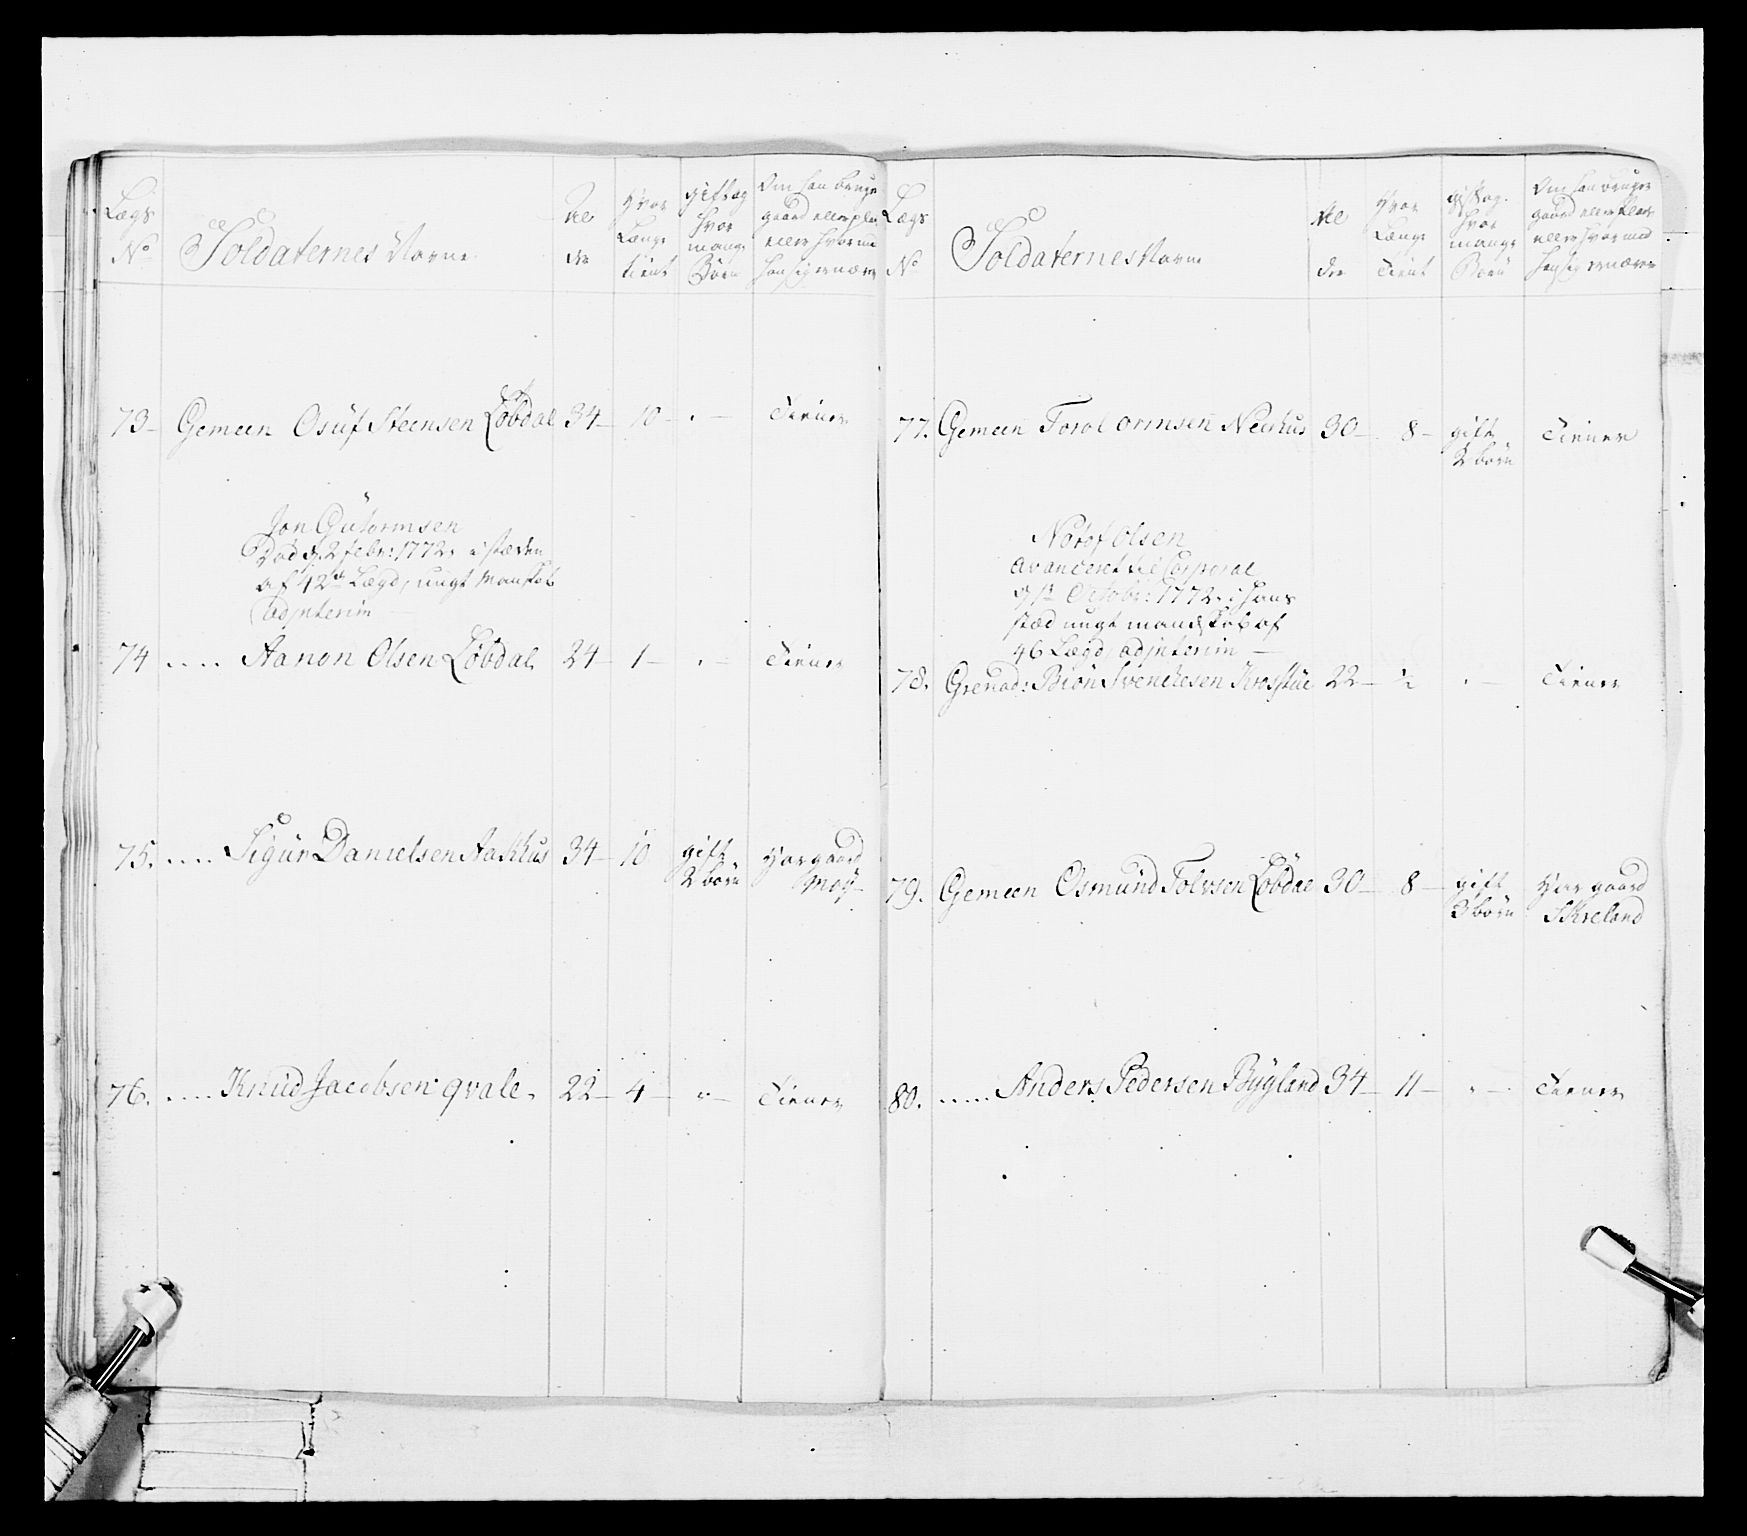 Lægs
No
Soldaternes Navne
Al
der
Hvor
Længe
tient
gift og
hvor
mange
Børn
Om han bruge
gaard eller plas
eller hvor med
han sig ernærer
73 – Gemeen Osüf Steensen Løbdal 34 – 10 – . – Tiener
Jon Gutormsen
Død d. 2 febr: 1772. i stæden
af 42de Lægd, ungt Mandskab
adjnterim
74 ..... Aanon Olsen Løbdal 24 – 1 – . – Tiener
75. ..... Sigur Danielsen Aakhus 34 – 10 gift Har gaard
2 børn Moÿ –
76. ..... Knud Jacobsen qvale. 22 – 4 – . – Tiener
Lægs
No
Soldaternes Navne
Al
der
Hvor
Længe
Tient
gift og
hvor
mange
Børn
Om han bruger
gaard eller Plads
eller hvor med
han sig ernærer
77. Gemeen Torol ormsen Neshus 30 – 8 – gift Tiener
2 børn
Notof Olsen
avanceret til Corporal
Octobr: 1772. i Hans
stæd ungt mandskab af
46 Lægd, adjnterim –
78. Grenad: Biøn Svenchesen Krosstüe 22 – ½ . – Tiener
79. Gemeen Osmünd Tolvsen Løbdal 30 – 8 – gift Har gaard
3 børn Skreland
80. ..... Anders Pedersen Bÿgland 34 – 11 – . – Tiener